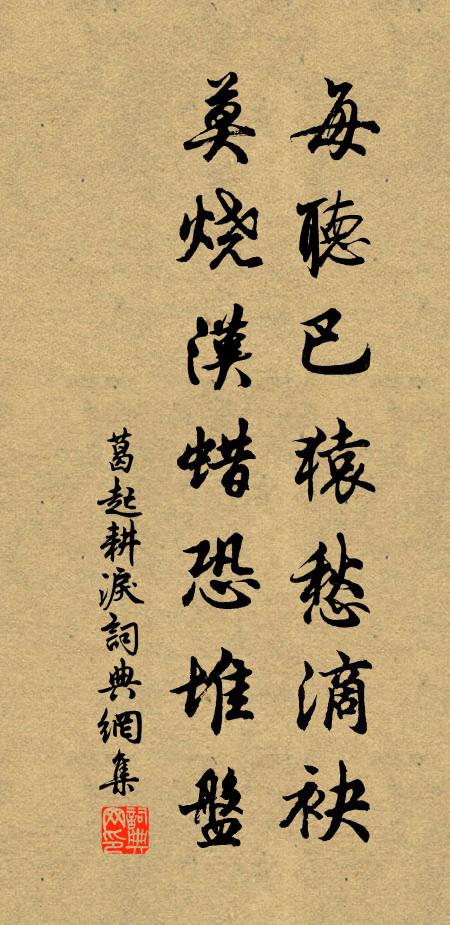 每聽巴猿愁滴袂
莫燒漢蜡恐堆盤
葛起耕淚詞典網集
詞典網印